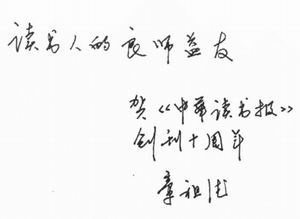 读书人的良师益友
贺《中华读书报》
创刊十周年
章祖德